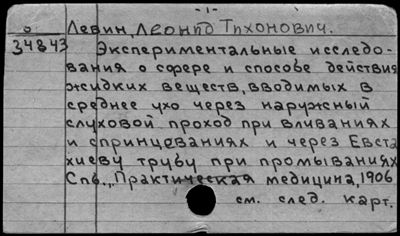 -1-
о
Левин, Леонид Тихонович.
34843
Экспериментальные исследо-
вания о сфере и способе действия
жидких веществ, вводимых в
среднее ухо через наружный
слуховой проход при вливаниях
и спринцованиях и через Евста
хиеву трубу при промываниях
Спб., Практическая медицина, 1906
см. след. карт.